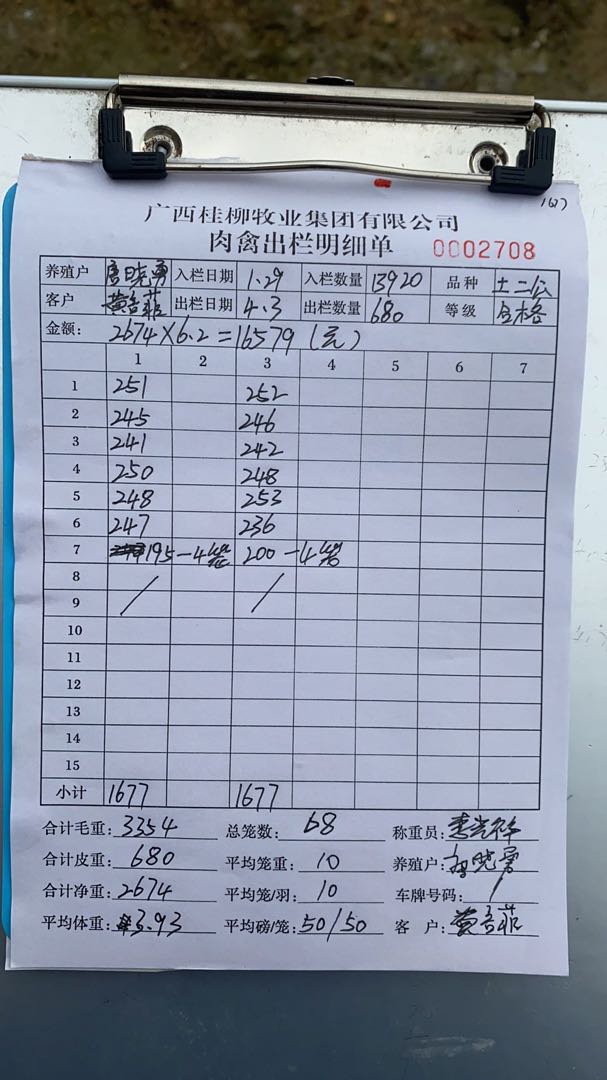 1677
广西桂柳牧业集团有限公司
肉禽出栏明细单 0002708
养殖户 唐晓勇 入栏日期 1.29 入栏数量 13920 品种 土二公
客户 黄容菲 出栏日期 4.3 出栏数量 680 等级 合格
金额: 2674×6.2=16579(元)
1 2 3 4 5 6 7
1 251 252
2 245 246
3 241 242
4 250 248
5 248 253
6 247 236
7 195-4笼 200-4笼
8
9 / /
10
11
12
13
14
15
小计 1677 1677
合计毛重: 3354 总笼数: 68 称重员:
合计皮重: 680 平均笼重: 10 养殖户: 唐晓勇
合计净重: 2674 平均笼/羽: 10 车牌号码: /
平均体重: 3.93 平均磅/笼: 50/50 客 户: 黄容菲